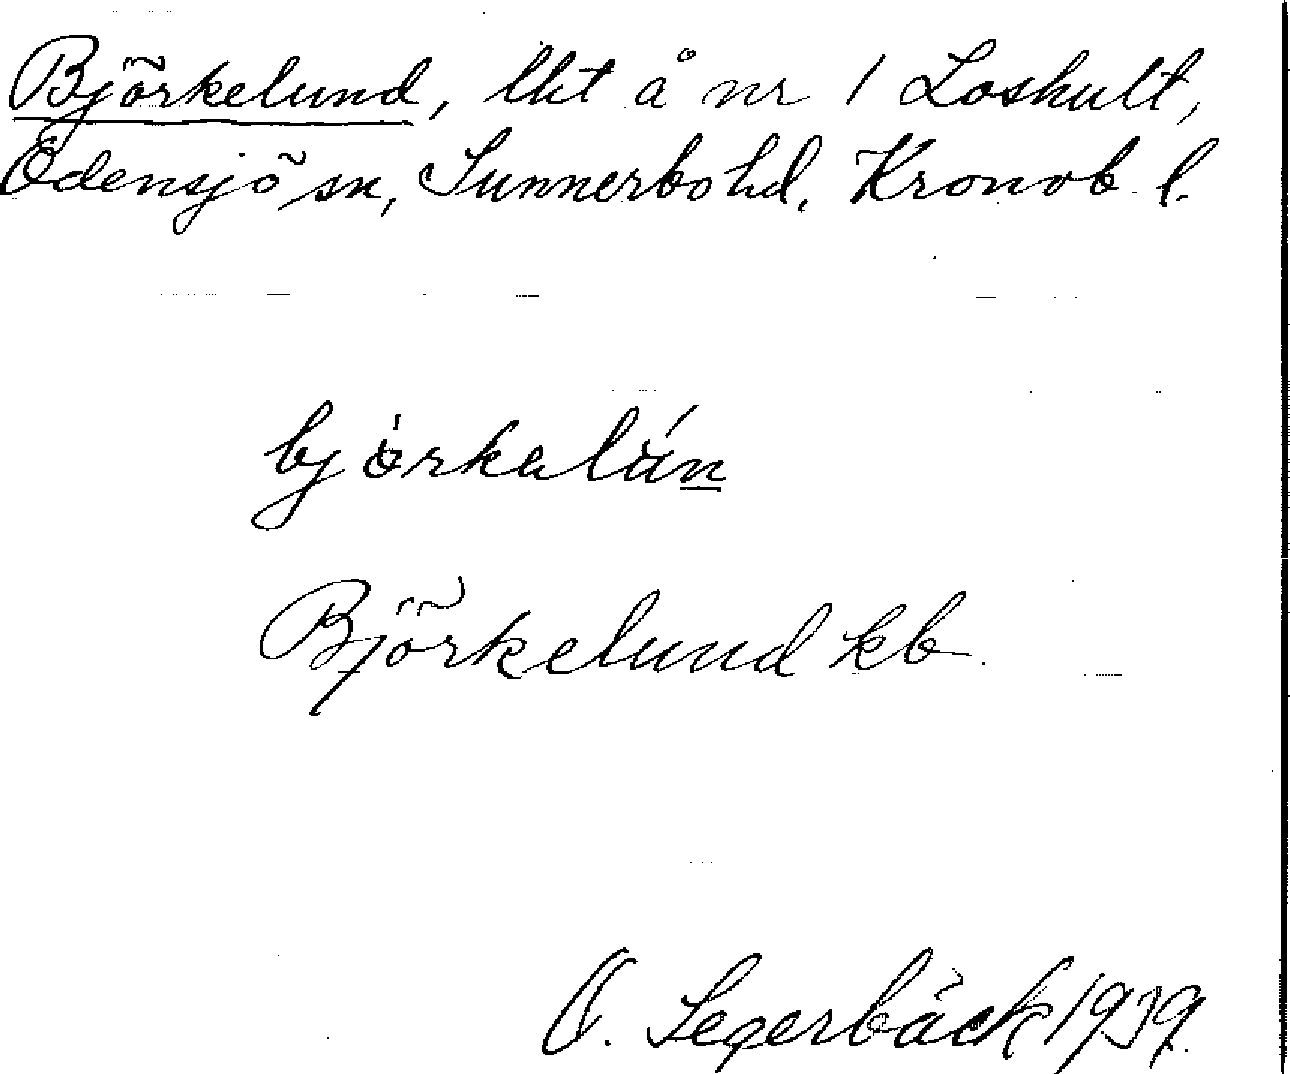 Björkelund, lht å nr 1 Loshult,
Odensjö sn, Sunnerbo hd. Kronob. l.
bjòrkalún
Björkelund kb.
O. Segerbäck 1939.